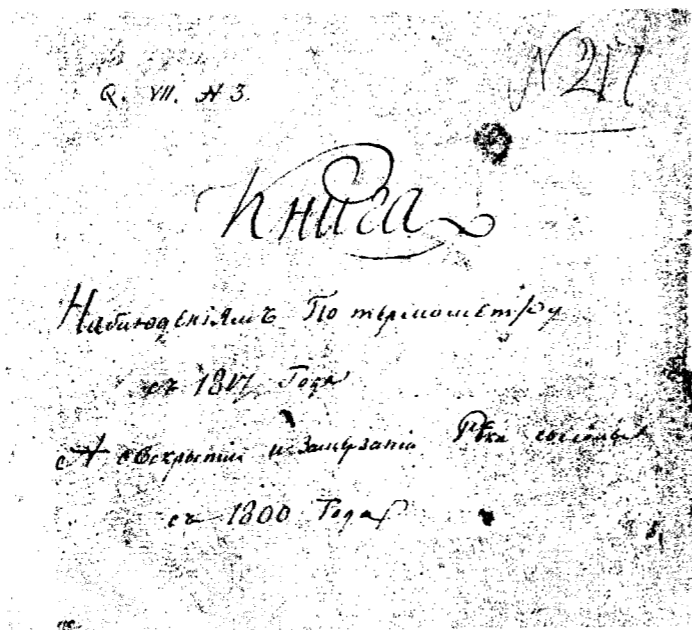 Q. VII. № 3.
№ 217
Книга
Наблюденіямъ По термометру
съ 1817 Года
и Замерзаніи
съ 1800 Года